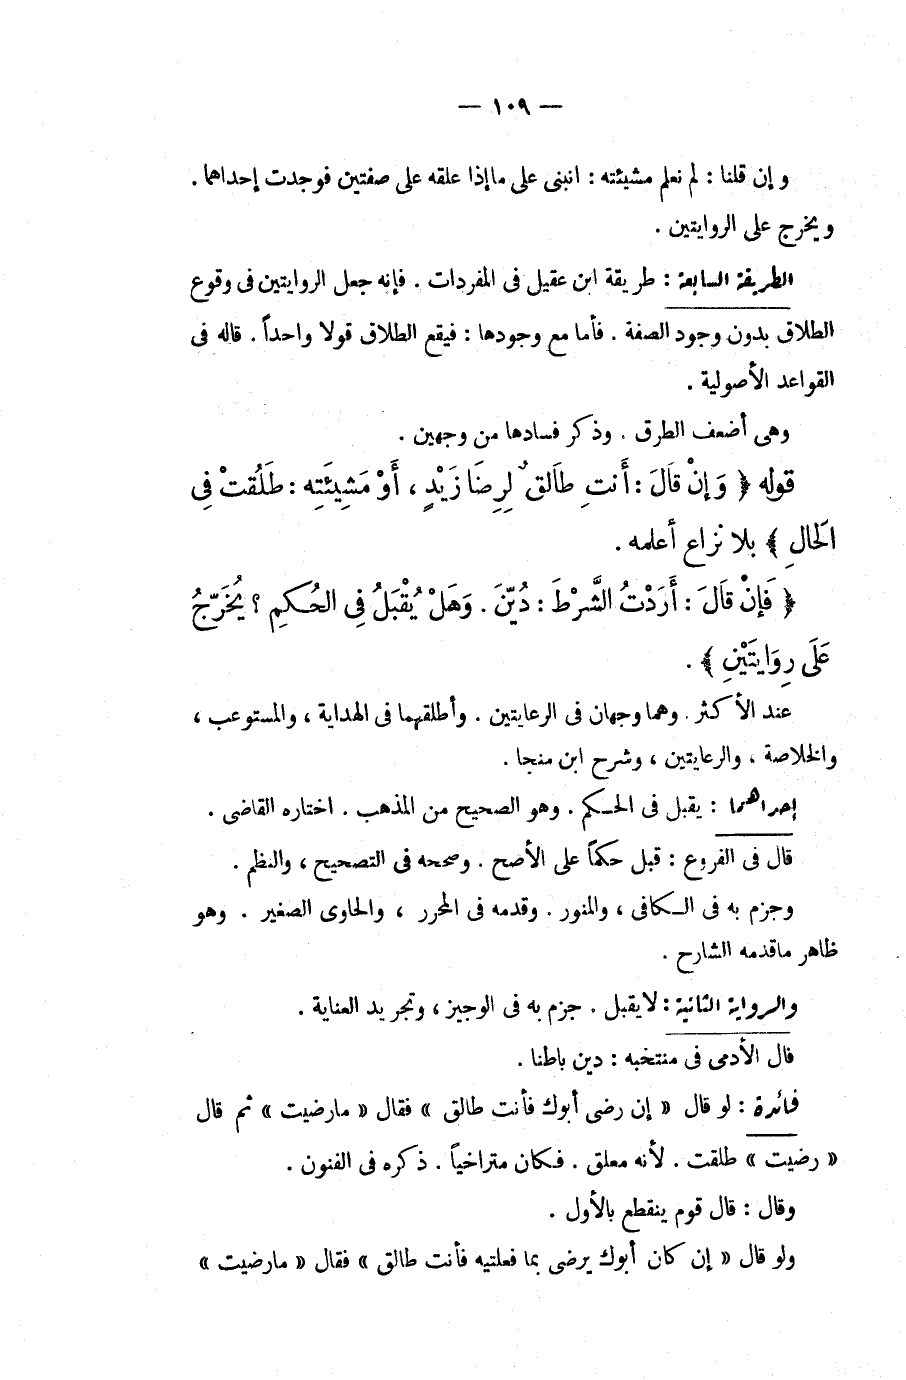 — ١٠٩ —
و إن قلنا : لم نعلم مشيئته : انبنى على ماإذا علقه على صفتين فوجدت إحداهما .
ويخرج على الروايتين .
الطريقة السابعة : طريقة ابن عقيل فى المفردات . فإنه جعل الروايتين فى وقوع
الطلاق بدون وجود الصفة . فأما مع وجودها : فيقع الطلاق قولا واحداً . قاله فى
القواعد الأصولية .
وهى أضعف الطرق . وذكر فسادها من وجهين .
قوله ﴿ وَإِنْ قَالَ : أَنتِ طَالقٌ لِرِضَا زَيْدٍ ، أَوْ مَشِيئَتِه : طَلُقَتْ فِى
الْحَالِ ﴾ بلا نزاع أعلمه .
﴿ فَإِنْ قَالَ : أَرَدْتُ الشَّرْطَ : دُيِّنَ . وَهَلْ يُقْبَلُ فِى الحُكمِ ؟ يُخَرَّجُ
عَلَى رِوَايَتَيْنِ ﴾ .
عند الأكثر . وهما وجهان فى الرعايتين . وأطلقهما فى الهداية ، والمستوعب ،
والخلاصة ، والرعايتين ، وشرح ابن منجا .
إحداهما : يقبل فى الحكم . وهو الصحيح من المذهب . اختاره القاضى .
قال فى الفروع : قبل حكماً على الأصح . وصححه فى التصحيح ، والنظم .
وجزم به فى الكافى ، والمنور . وقدمه فى المحرر ، والحاوى الصغير . وهو
ظاهر ماقدمه الشارح .
والرواية الثانية : لايقبل . جزم به فى الوجيز ، وتجريد العناية .
قال الأدمى فى منتخبه : دين باطنا .
فائدة : لو قال « إن رضى أبوك فأنت طالق » فقال « مارضيت » ثم قال
« رضيت » طلقت . لأنه معلق . فكان متراخياً . ذكره فى الفنون .
وقال : قال قوم ينقطع بالأول .
ولو قال « إن كان أبوك يرضى بما فعلتيه فأنت طالق » فقال « مارضيت »